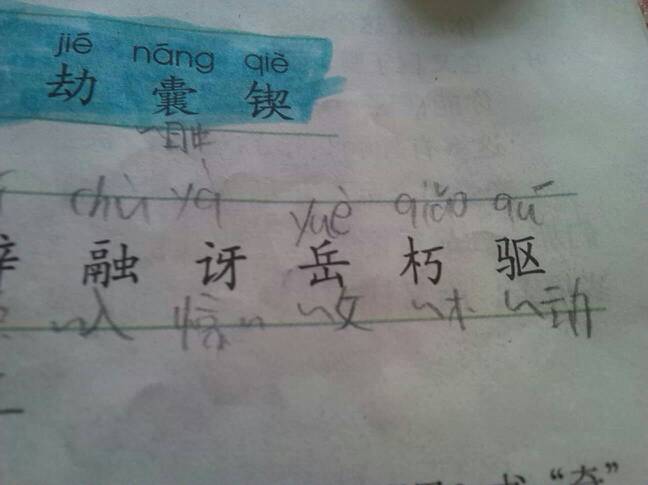 jié nāng qiè
劫 囊 锲
chù yà yuè qiǎo qū
融 讶 岳 朽 驱
~入 惊~ ~父 ~木 ~动